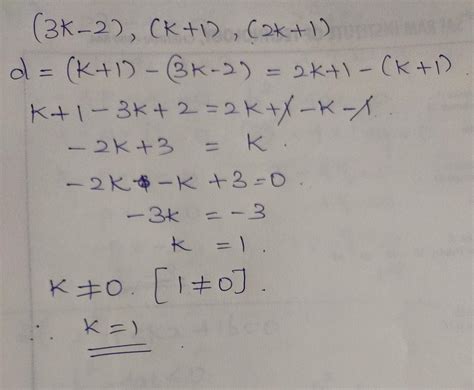 (3k-2), (k+1), (2k+1)
d = (k+1) - (3k-2) = 2k+1 - (k+1)
k+1-3k+2 = 2k+1-k-1
-2k+3 = k.
-2k -k +3=0.
-3k = -3
k = 1.
k ≠ 0. [1≠0].
∴ k=1